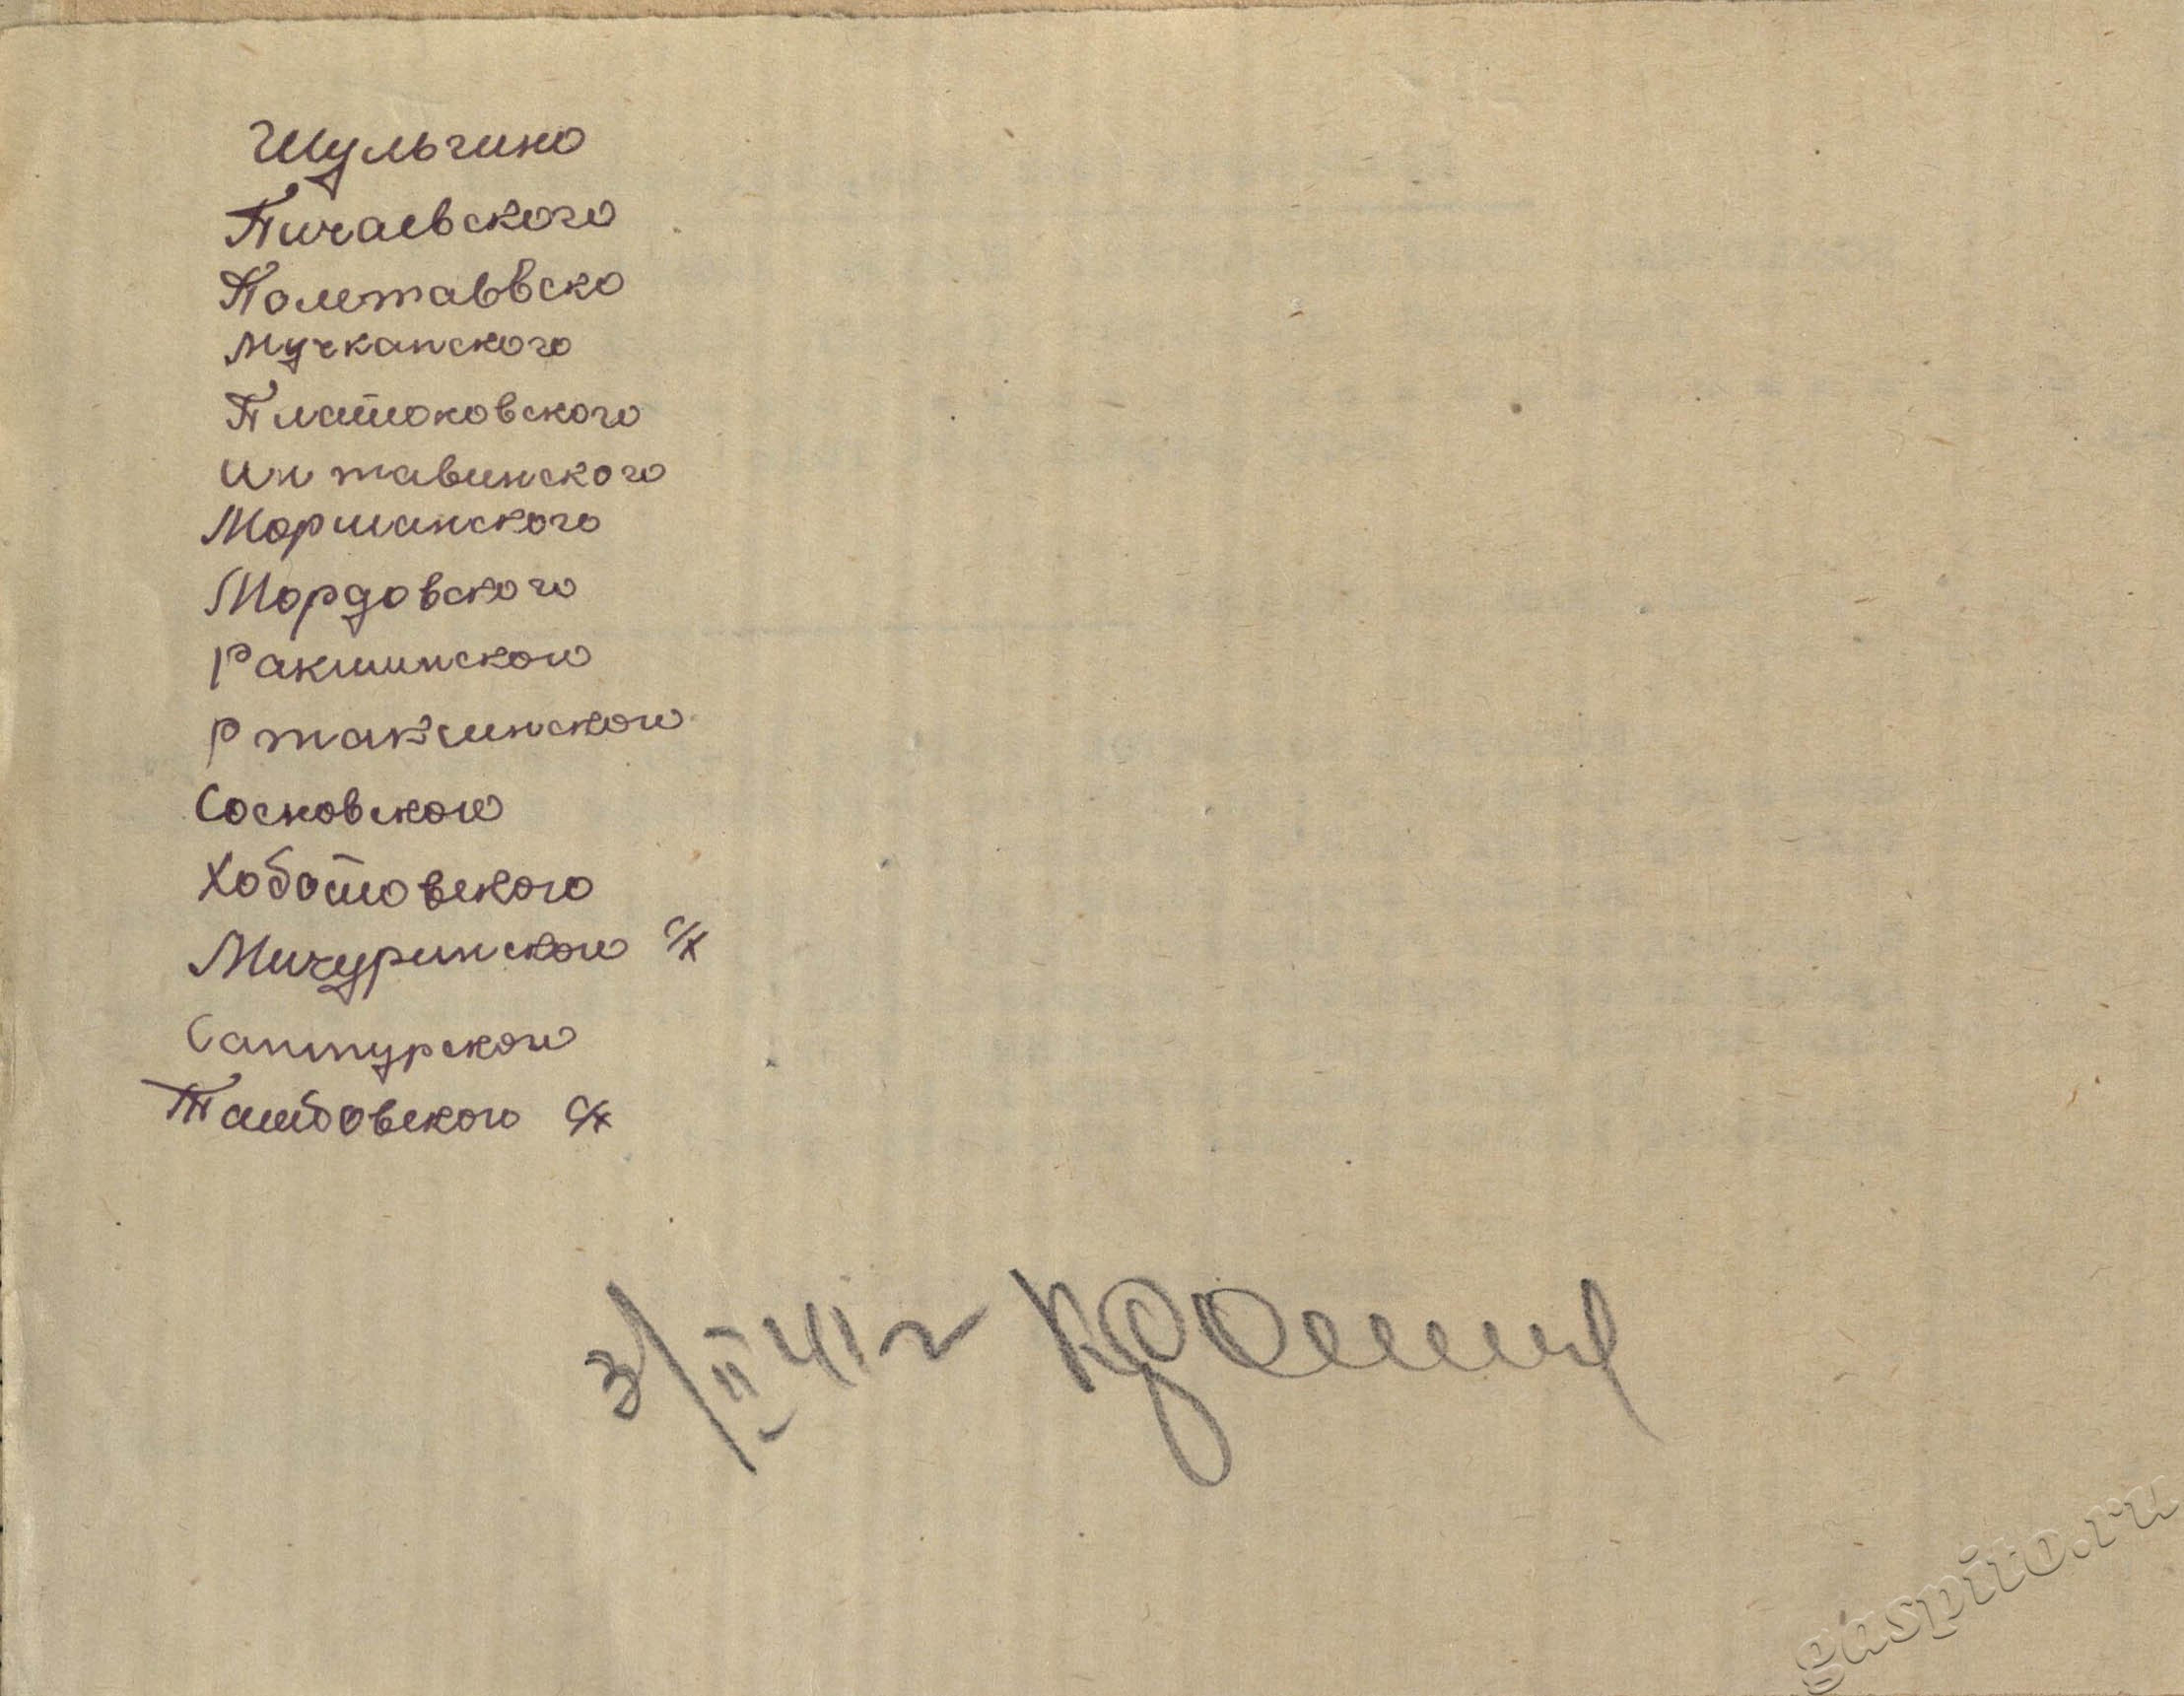 Шульгино
Пичаевского
Полетаввско
Мучканского
Платоковского
Ин тавинского
Моршанского
Мордовского
Ракшинского
Ртаксинского
Сосновского
Хоботовского
Мичуринского с/х
Сантурского
Тамбовского с/х
3/II 41 г
gaspito.ru